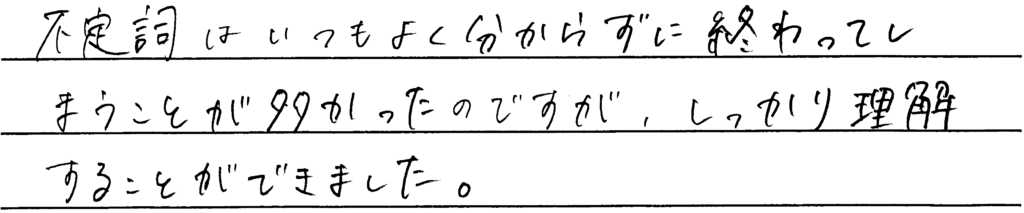 不定詞はいつもよく分からずに終わってし
まうことが多かったのですが、しっかり理解
することができました。